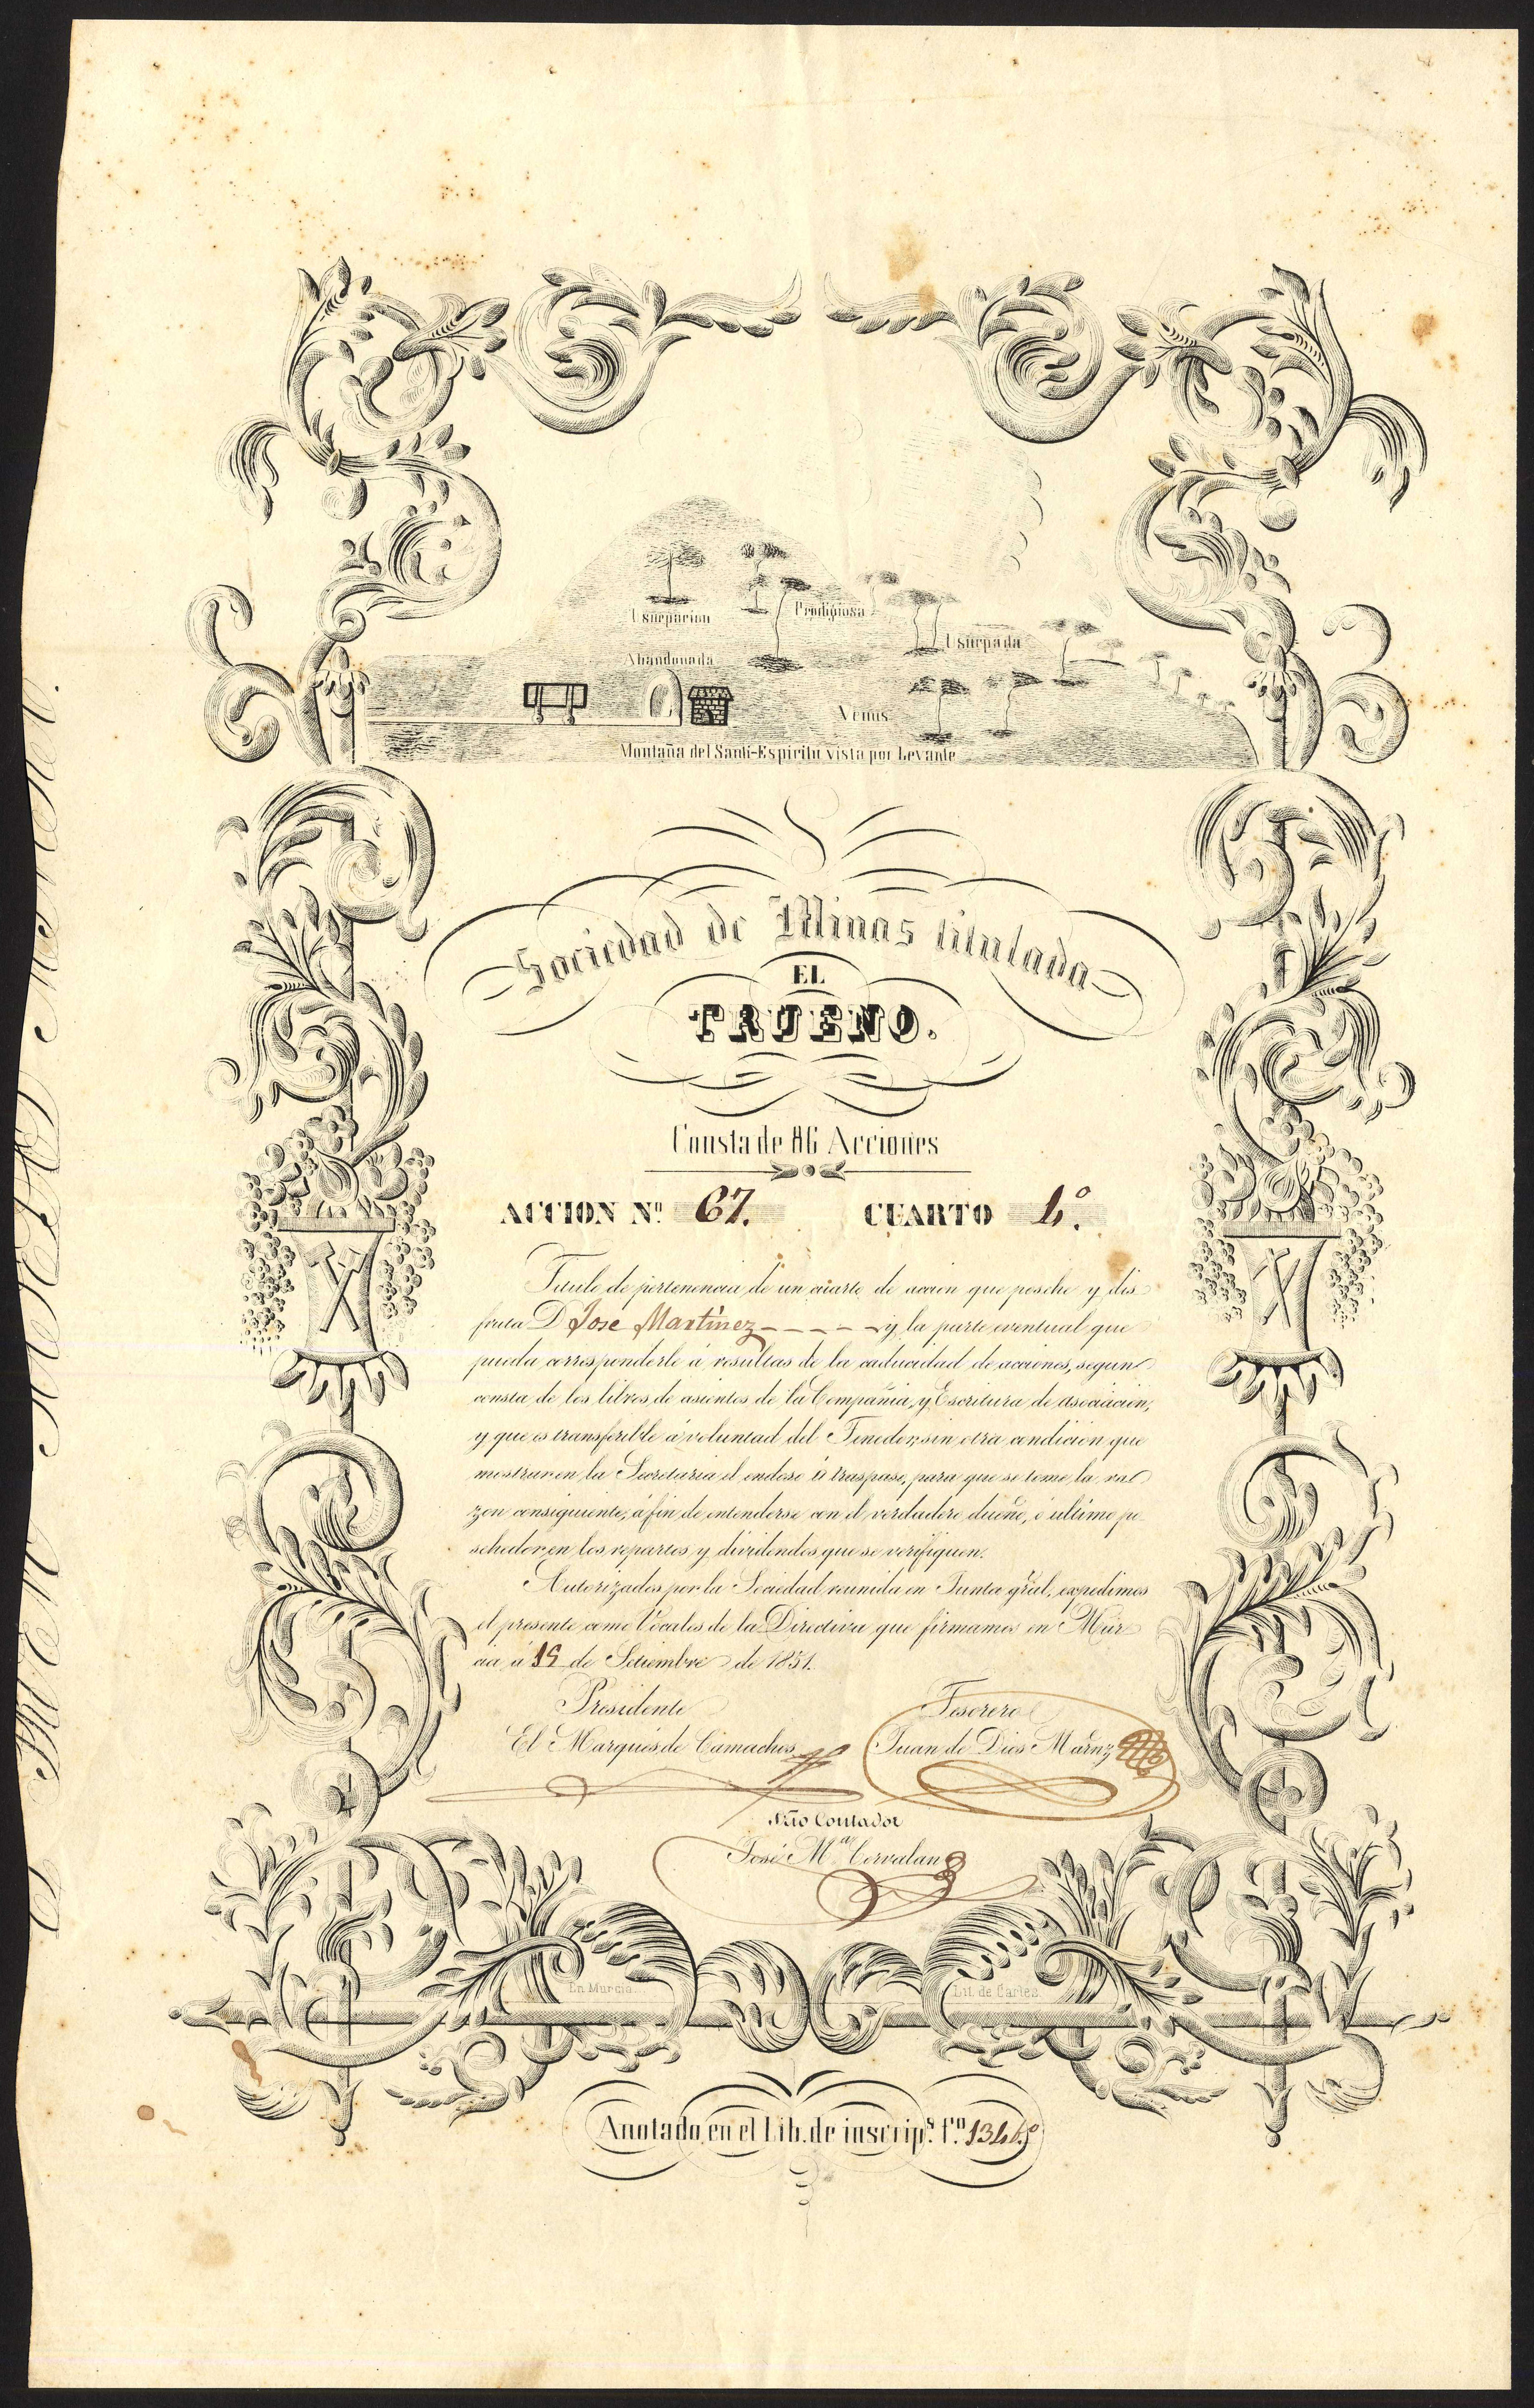 Usurpacion
Prodigiosa
Usurpada
Abandonada
Venus
Montaña del Santi-Espiritu vista por Levante
Sociedad de Minas titulada
EL
TRUENO.
Consta de 86 Acciones
ACCION Nº 67. CUARTO 4º.
Titulo de pertenencia de un cuarto de accion que poséhe y dis
fruta D. Jose Martinez y la parte eventual que
pueda corresponderle á resultas de la caducidad de acciones, segun
consta de los libros de asientos de la Compañia, y Escritura de asociacion,
y que es transferible á voluntad del Tenedor, sin otra condicion que
mostrar en la Secretaria el endoso ó traspaso, para que se tome la ra
zon consiguiente, á fin de entenderse con el verdadero dueño, ó ultimo po
sehedor, en los repartos y dividendos que se verifiquen.
Autorizados por la Sociedad reunida en Junta gral, expedimos
el presente como Vocales de la Directiva que firmamos en Mur
cia á 15 de Setiembre de 1851.
Presidente Tesorero
El Marques de Camachos Juan de Dios Marnz
Srio Contador
José Mª Cervalan
En Murcia. Lit. de Carles.
Anotado en el Lib. de inscripª. fº. 134